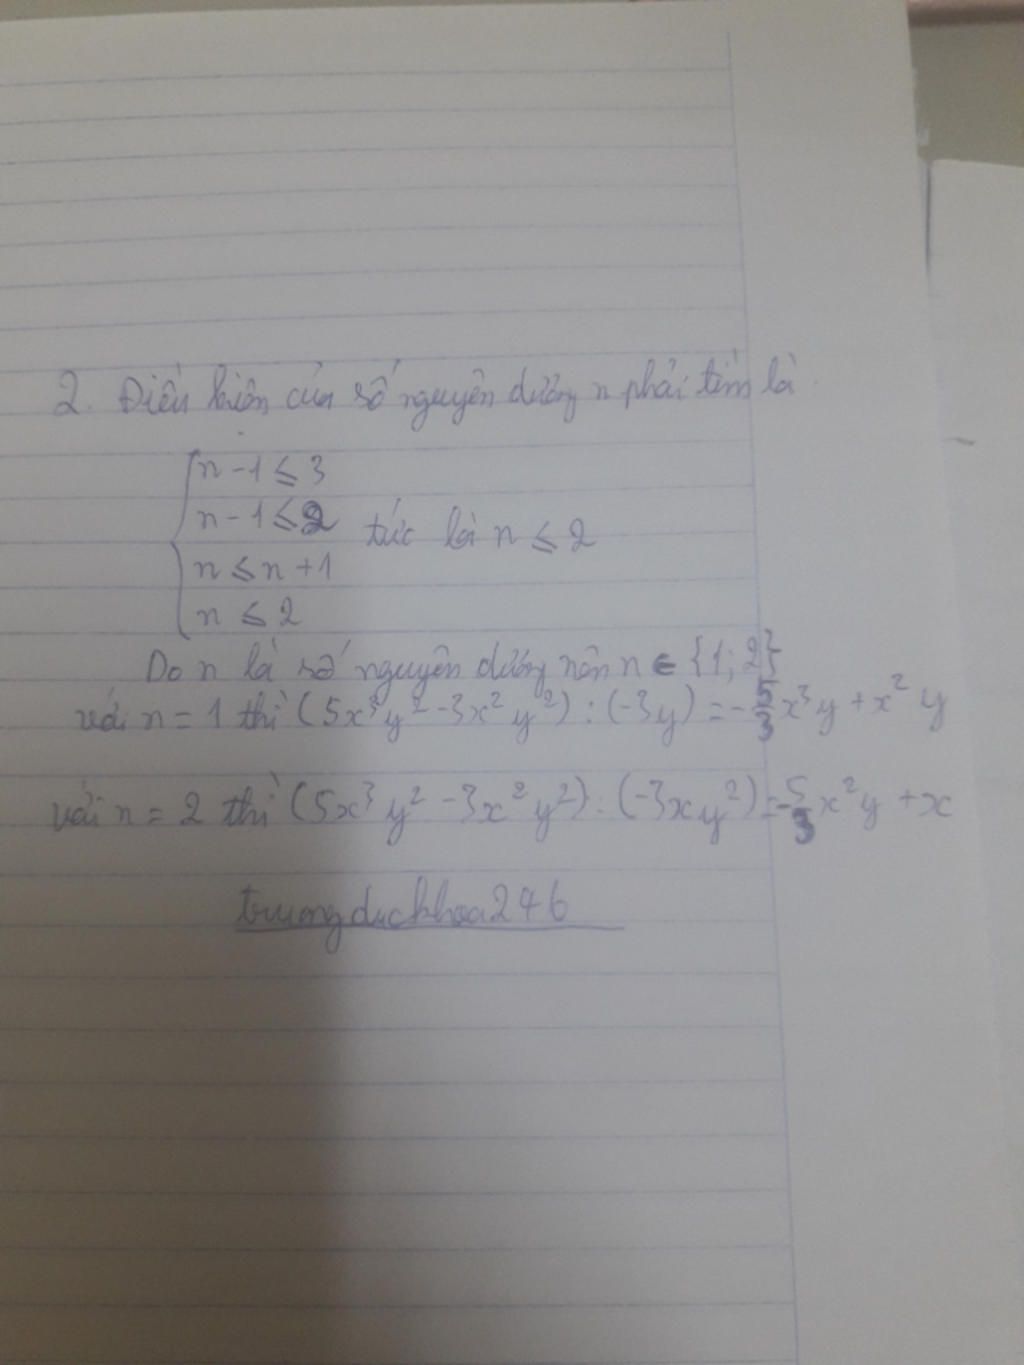 2. Điều kiện của số nguyên dương n phải tìm là
n - 1 ≤ 3
n - 1 ≤ 2
n ≤ n + 1
n ≤ 2
tức là n ≤ 2
Do n là số nguyên dương nên n ∈ {1; 2}
với n = 1 thì (5x³y² - 3x²y²) : (-3y) = -5/3 x³y + x²y
với n = 2 thì (5x³y² - 3x²y²) : (-3xy²) = -5/3 x²y + x
truongduckhoa246